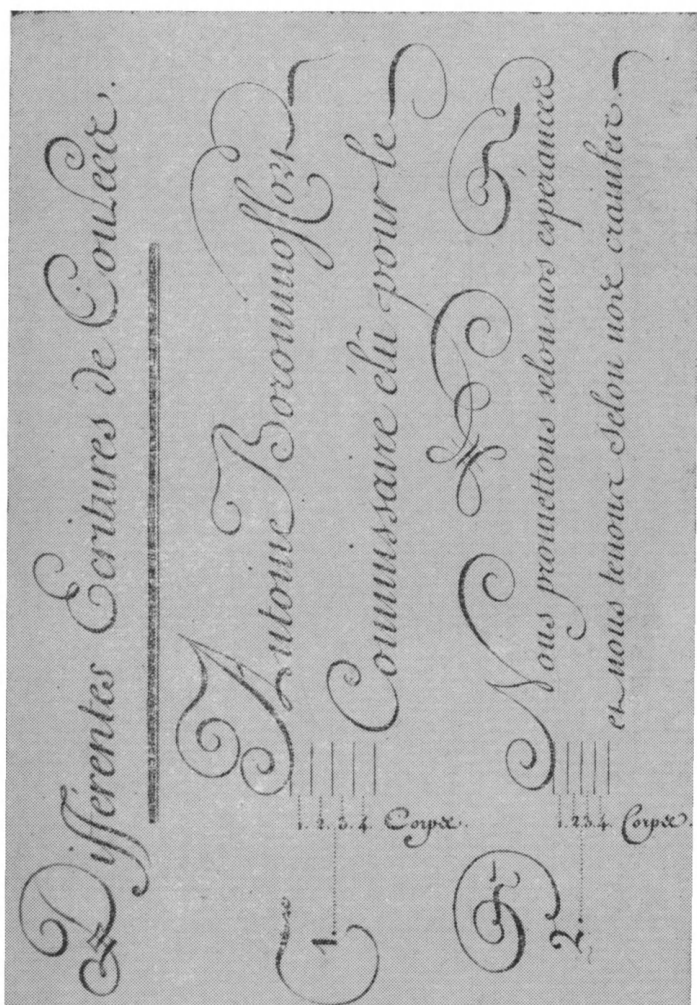 Différentes Ecritures de Coulées.
1. 1. 2. 3. 4. Corps.
Antoine
Commissaire élû pour le
2. 1. 2. 3. 4. Corps.
Nous promettons selon nos espérances
et nous tenons selon nos craintes.